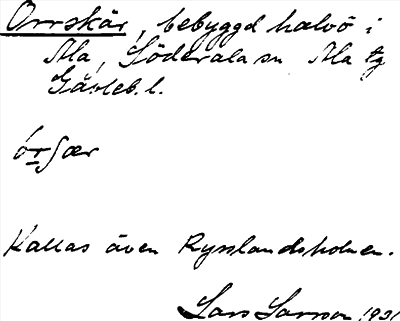 Orrskär, bebyggd halvö i
Ala, Söderala sn Ala tg
Gävleb. l.
Kallas även Rysslandsholmen.
Lars Larsson